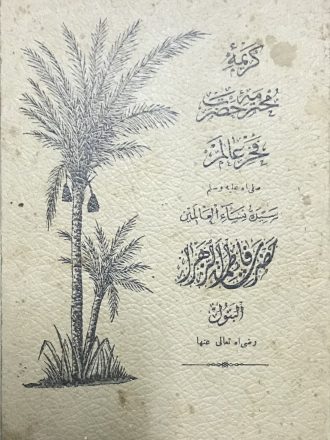 كريمهٔ
محترمهٔ حضرت
فخر عالم
صلى الله عليه وسلم
سيدة نساء العالمين
حضرت فاطمة الزهراء
البتول
رضى الله تعالى عنها